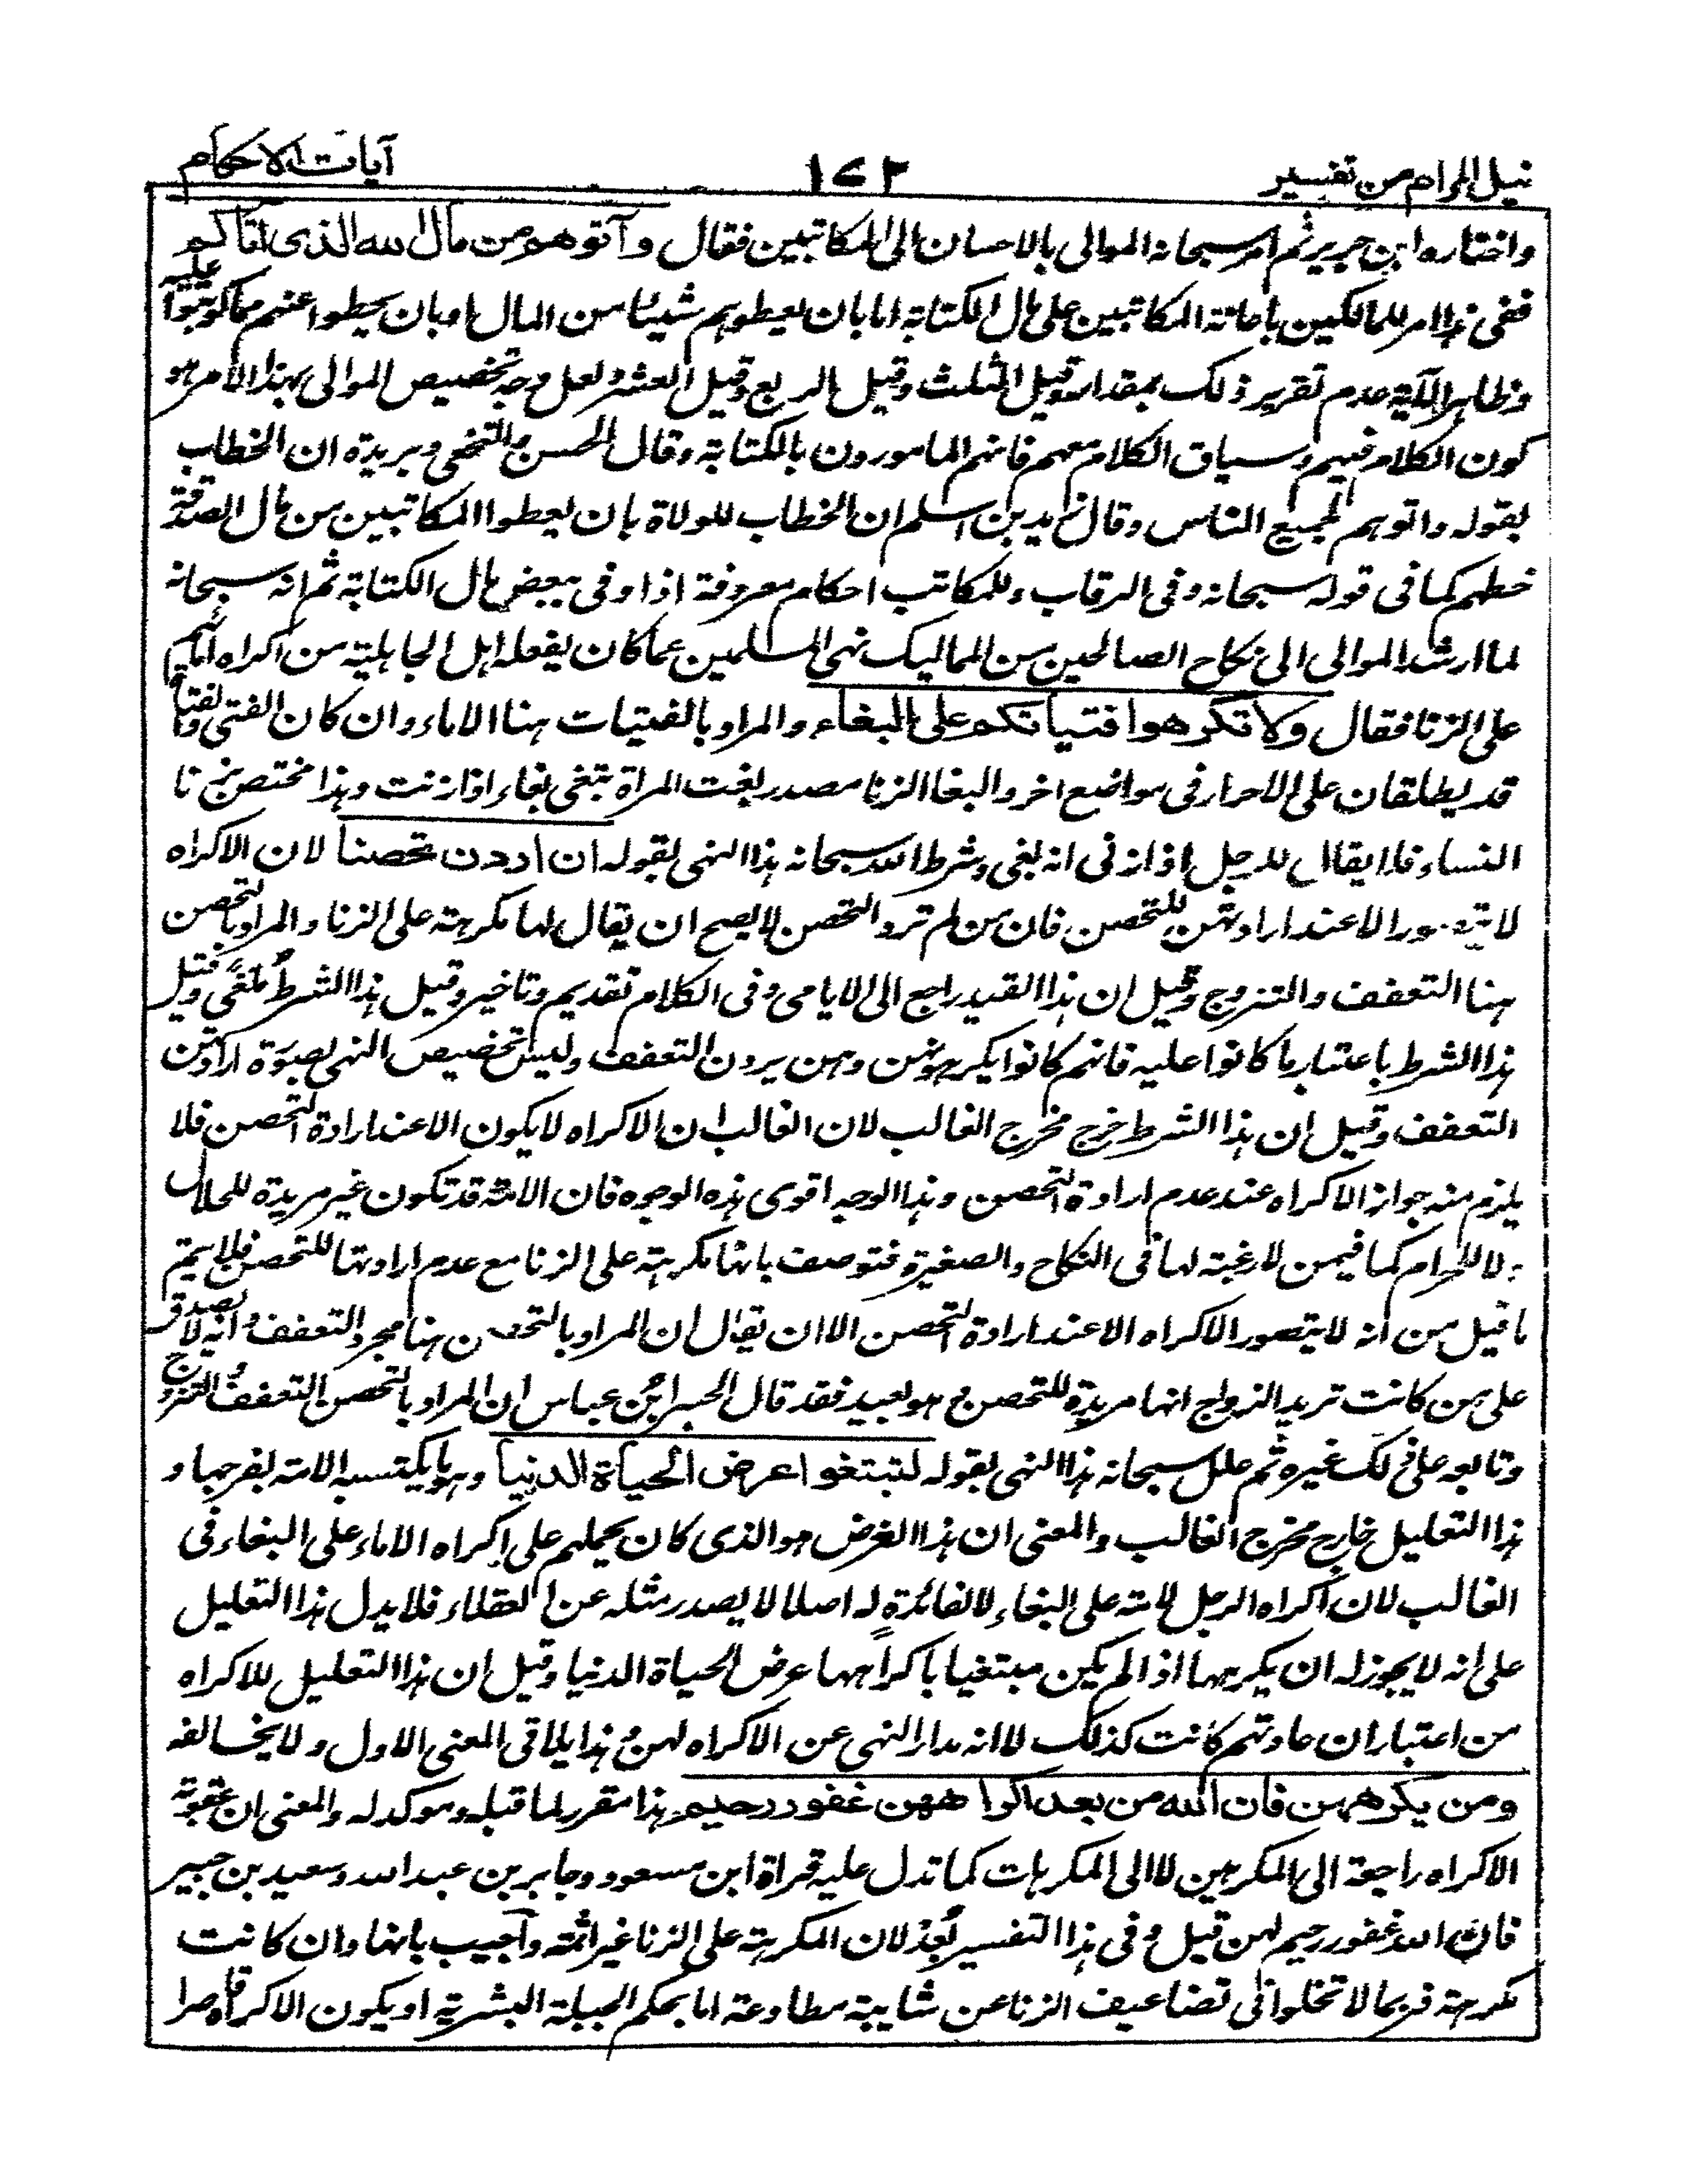 نيل المرام من تفسير ١٧٢ آيات الاحكام
واختاره ابن جرير ثم امر سبحانه الموالى بالاحسان الى المكاتبين فقال وآتوهم من مال الله الذى اتاكم
ففى هذا امر للمالكين باعانة المكاتبين على مال الكتابة اما بان يعطوهم شيئا من المال او بان يحطوا عنهم مما كوتبوا عليه
وظاهر الآية عدم تقرير ذلك بمقدار وقيل الثلث وقيل الربع وقيل العشر ولعل وجه تخصيص الموالى بهذا الامر هو
كون الكلام فيهم وسياق الكلام معهم فانهم المامورون بالكتابة وقال الحسن والنخعى وبريدة ان الخطاب
بقوله واتوهم لجميع الناس وقال زيد بن اسلم ان الخطاب للولاة بان يعطوا المكاتبين من مال الصدقة
حظهم كما فى قوله سبحانه وفى الرقاب وللمكاتب احكام معروفة اذا وفى ببعض مال الكتابة ثم انه سبحانه
لما ارشد الموالى الى نكاح الصالحين من المماليك نهى المسلمين عما كان يفعله اهل الجاهلية من اكراه امائهم
على الزنا فقال ولا تكرهوا فتياتكم على البغاء والمراد بالفتيات هنا الاماء وان كان الفتى والفتاة
قد يطلقان على الاحرار فى مواضع اخر والبغا الزنا مصدر بغت المراة تبغى بغاء اذا زنت وهذا مختص بزنا
النساء فلا يقال للرجل اذا زنى انه بغى وشرط الله سبحانه هذا النهى بقوله ان اردن تحصنا لان الاكراه
لا يتصور الا عند ارادتهن للتحصن فان من لم ترد التحصن لا يصح ان يقال لها مكرهة على الزنا والمراد بالتحصن
هنا التعفف والتزوج وقيل ان هذا القيد راجع الى الايامى وفى الكلام تقديم وتاخير وقيل هذا الشرط ملغى وقيل
هذا الشرط باعتبار ما كانوا عليه فانهم كانوا يكرهونهن وهن يردن التعفف وليس تخصيص النهى بصورة ارادتهن
التعفف وقيل ان هذا الشرط خرج مخرج الغالب لان الغالب ان الاكراه لا يكون الا عند ارادة التحصن فلا
يلزم منه جواز الاكراه عند عدم ارادة التحصن وهذا الوجه اقوى هذه الوجوه فان الامة قد تكون غير مريدة للحلال
ولا للحرام كما فيمن لا رغبة لها فى النكاح والصغيرة فتوصف بانها مكرهة على الزنا مع عدم ارادتها للتحصن فلا يتم
ما قيل من انه لا يتصور الاكراه الا عند ارادة التحصن الا ان يقال ان المراد بالتحصن هنا مجرد التعفف وانه لا يصدق
على من كانت تريد الزواج انها مريدة للتحصن وهو بعيد فقد قال الحبر ابن عباس ان المراد بالتحصن التعفف والتزوج
وتابعه على ذلك غيره ثم علل سبحانه هذا النهى بقوله لتبتغوا عرض الحياة الدنيا وهو ما يكتسبه الامة بفرجها و
هذا التعليل خارج مخرج الغالب والمعنى ان هذا الغرض هو الذى كان يحملهم على اكراه الاماء على البغاء فى
الغالب لان اكراه الرجل لامته على البغاء لا لفائدة له اصلا لا يصدر مثله عن العقلاء فلا يدل هذا التعليل
على انه لا يجوز له ان يكرهها اذا لم يكن مبتغيا باكراهها عرض الحياة الدنيا وقيل ان هذا التعليل للاكراه
من اعتبار ان عادتهم كانت كذلك لا انه مدار النهى عن الاكراه لهن وهذا يلاقى المعنى الاول ولا يخالفه
ومن يكرههن فان الله من بعد اكراههن غفور رحيم هذا مقرر لما قبله وموكد له والمعنى ان عقوبة
الاكراه راجعة الى المكرهين لا الى المكرهات كما تدل عليه قراة ابن مسعود وجابر بن عبدالله وسعيد بن جبير
فان الله غفور رحيم لهن قيل وفى هذا التفسير بُعْدٌ لان المكرهة على الزنا غير اثمة واجيب بانها وان كانت
مكرهة فربما لا تخلوا فى تضاعيف الزنا عن شايبة مطاوعة اما بحكم الجبلة البشرية او يكون الاكراه قاصرا